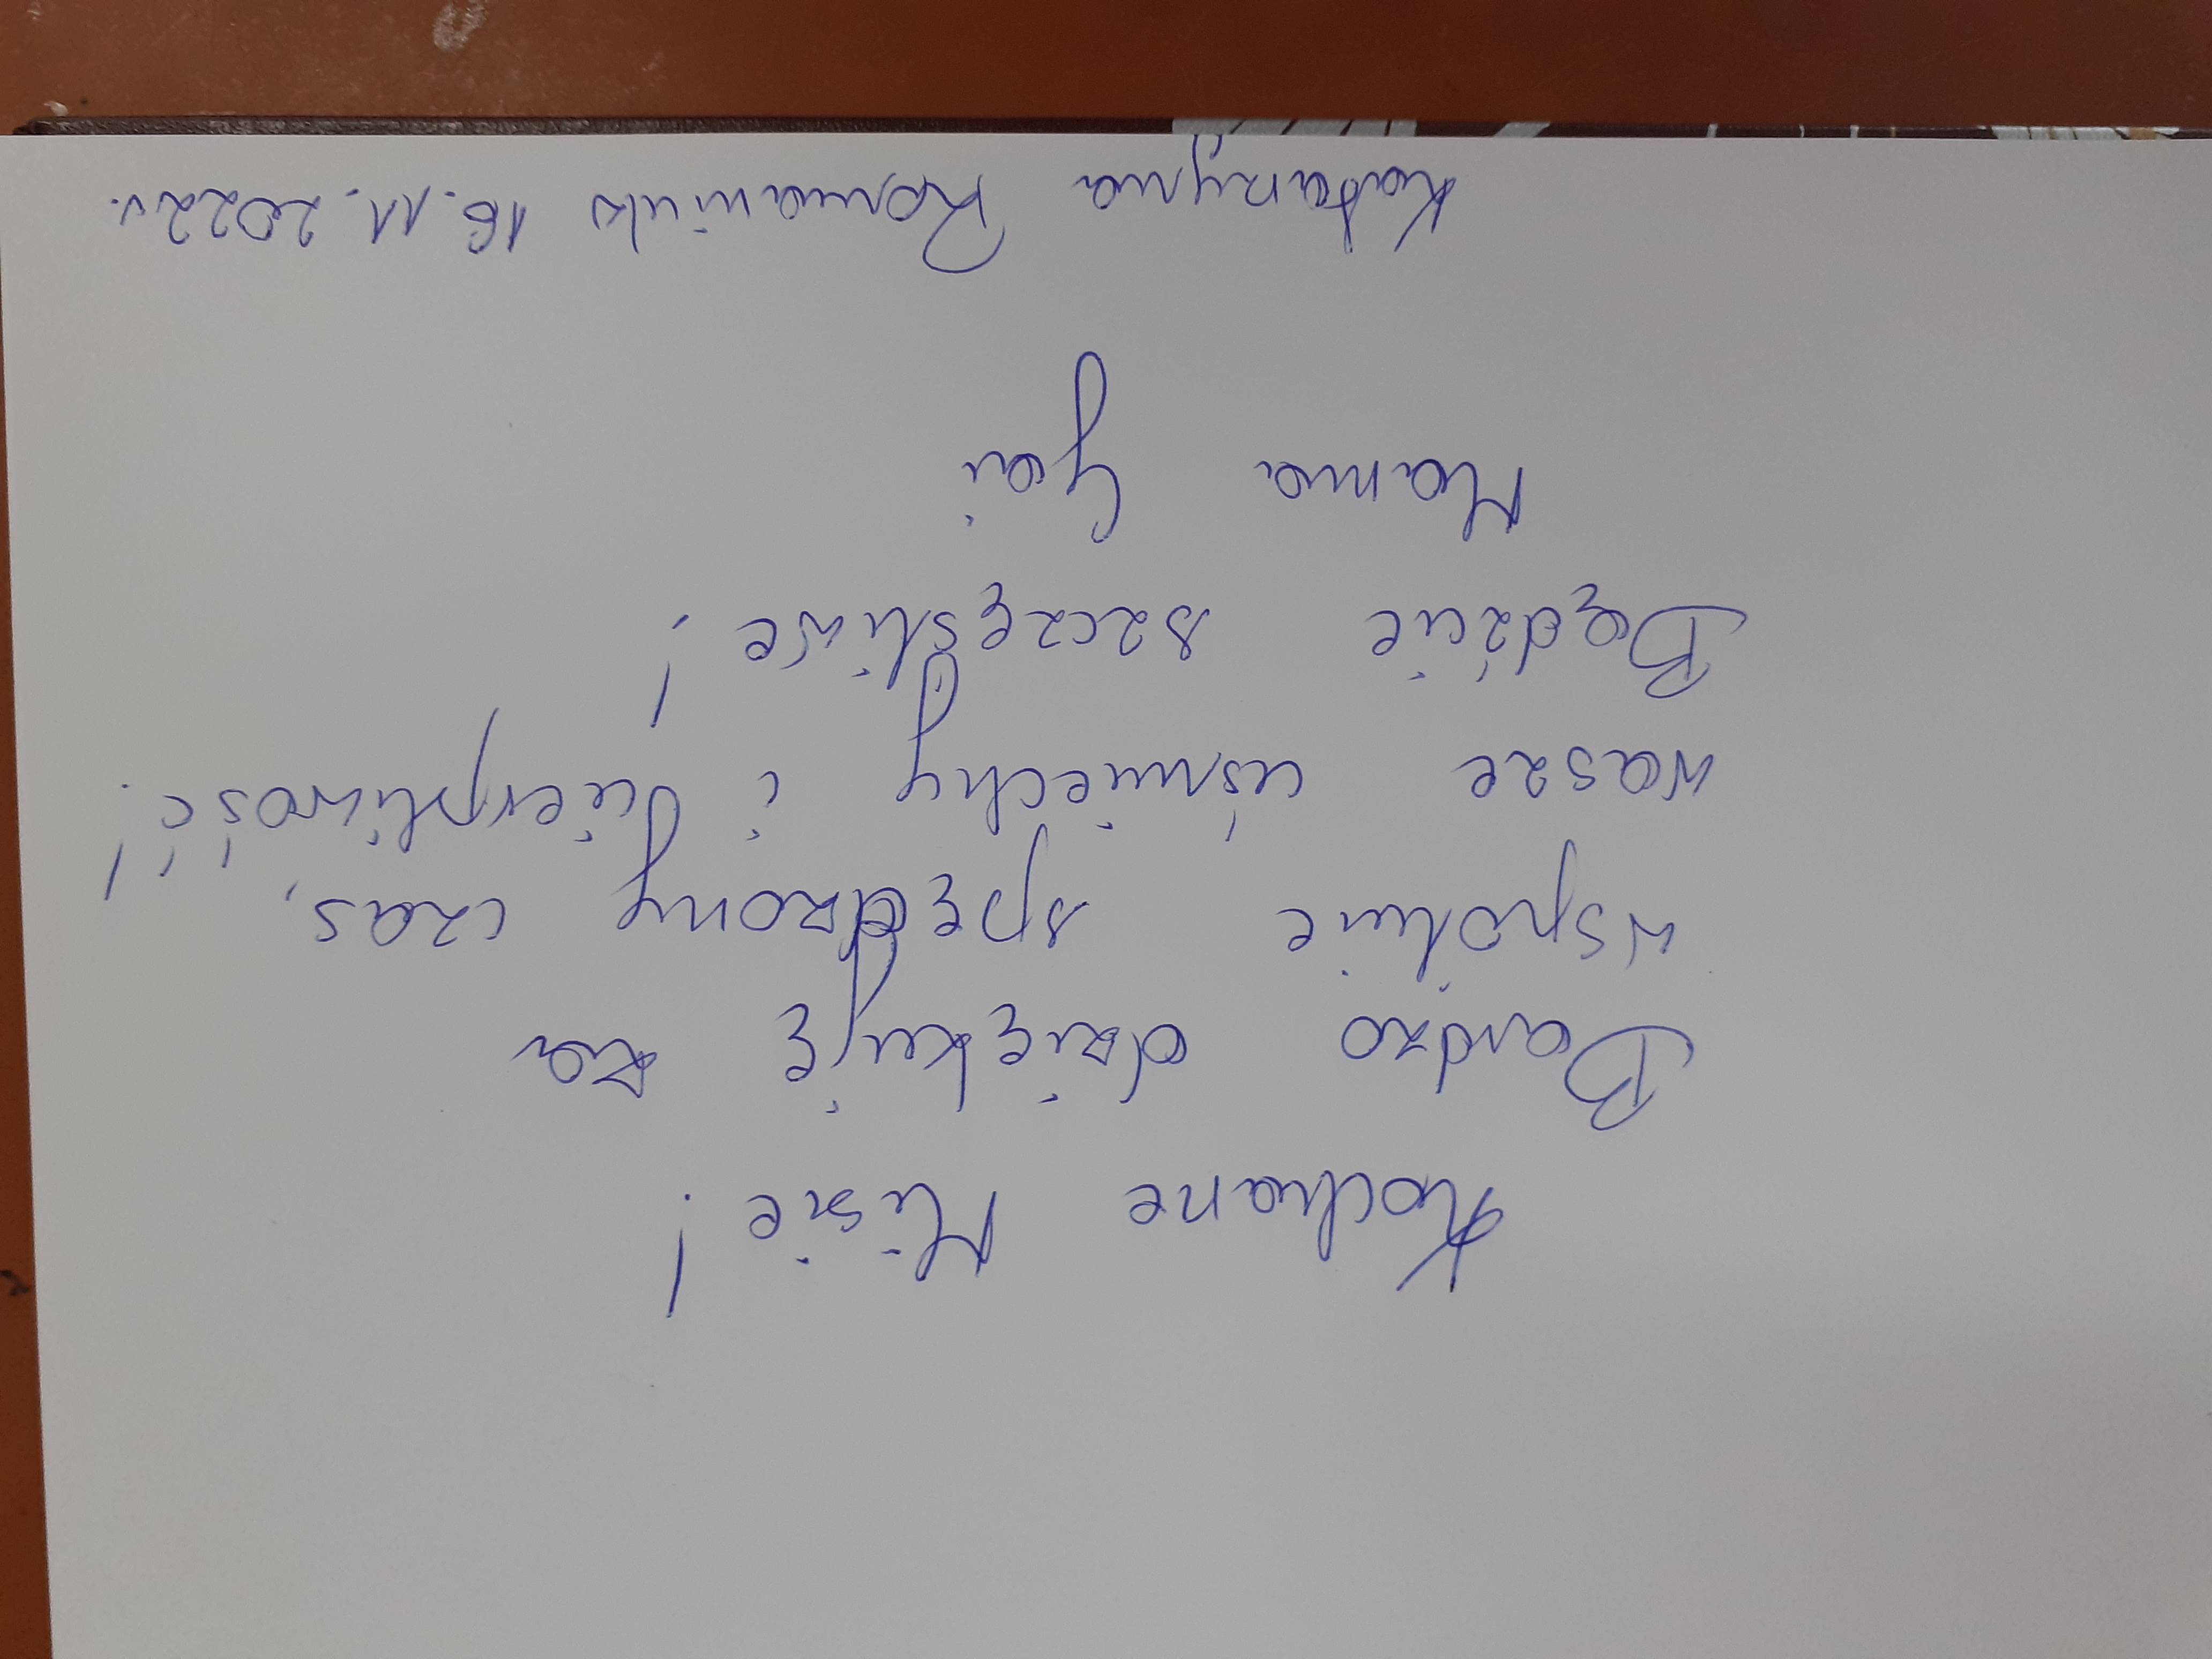 Kochane Misie!
Bardzo dziękuję za
wspólnie spędzony czas,
wasze uśmiechy i cierpliwość!
Bądźcie szczęśliwe!
Mama Gai
Katarzyna Romaniuk 16.11.2022r.